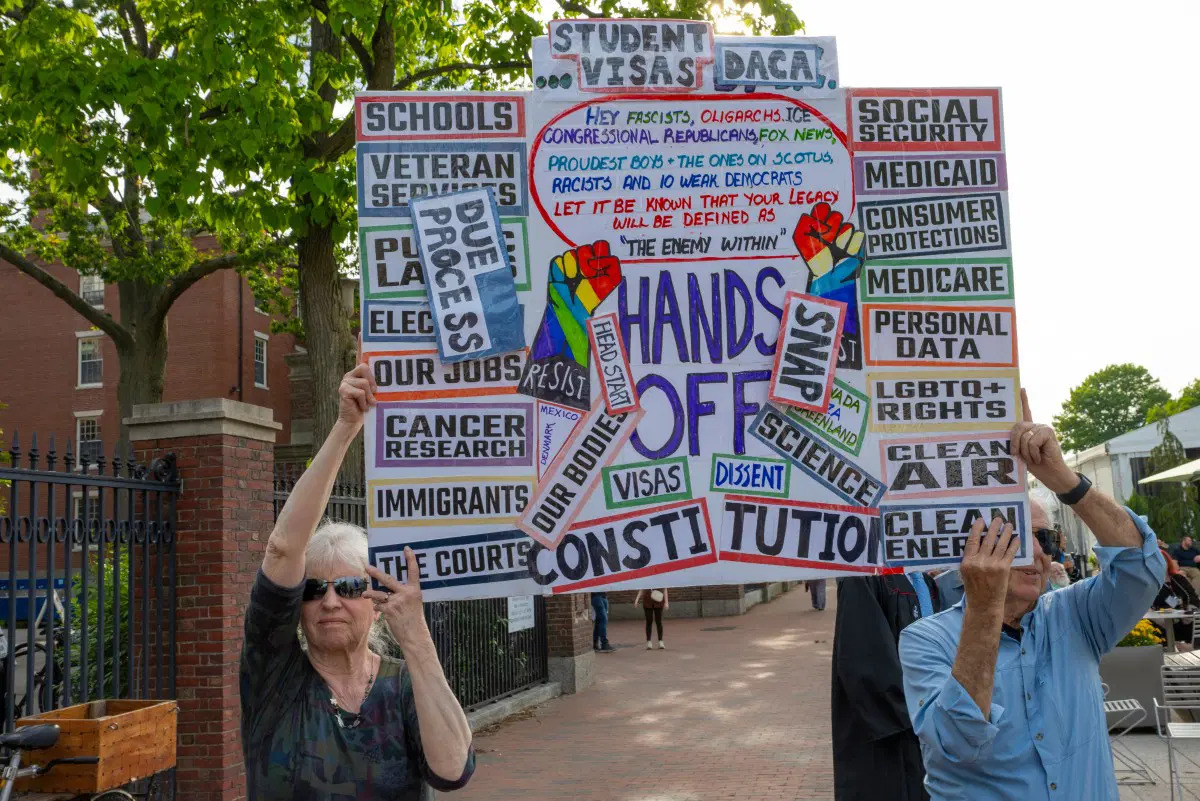 STUDENT
... VISAS
DACA
HEY FASCISTS, OLIGARCHS, ICE
CONGRESSIONAL REPUBLICANS, FOX NEWS,
PROUDEST BOYS + THE ONES ON SCOTUS,
RACISTS AND 10 WEAK DEMOCRATS
LET IT BE KNOWN THAT YOUR LEGACY
WILL BE DEFINED AS
"THE ENEMY WITHIN"
HANDS
OFF
SCHOOLS
VETERAN
SERVICES
DUE
PROCESS
OUR JOBS
CANCER
RESEARCH
IMMIGRANTS
THE COURTS
RESIST
HEAD START
MEXICO
DENMARK
OUR BODIES
VISAS
DISSENT
CONSTITUTION
SNAP
GREENLAND
SCIENCE
SOCIAL
SECURITY
MEDICAID
CONSUMER
PROTECTIONS
MEDICARE
PERSONAL
DATA
LGBTQ+
RIGHTS
CLEAN
AIR
CLEAN